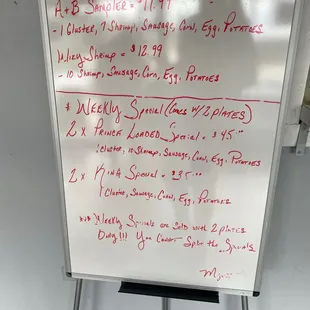 A+B Sampler = $11.99
- 1 Cluster, 7 Shrimp, Sausage, Corn, Egg, Potatoes
Shrimp = $12.99
- 10 Shrimp, Sausage, Corn, Egg, Potatoes
* Weekly Special (Comes w/ 2 plates)
2 x Prince Loaded Special = $45.00
1 Cluster, Shrimp, Sausage, Corn, Egg, Potatoes
2 x King Special = $35.00
1 Cluster, Sausage, Corn, Egg, Potatoes
Weekly Specials are Sold with 2 plates
Only!!! You Cannot Split the Specials